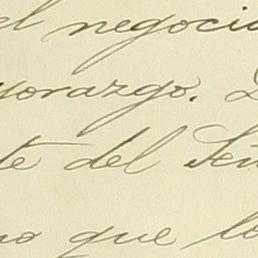 el negocio
yorazgo.
te del Señ
no que lo